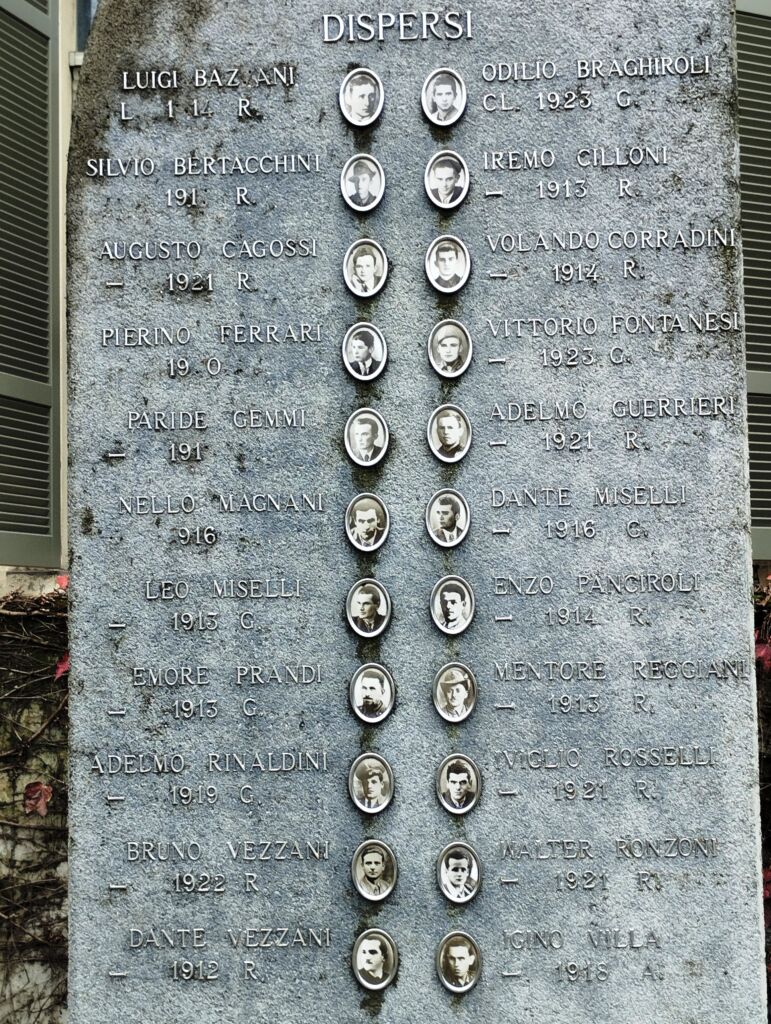 DISPERSI
LUIGI BAZ ANI
L 1 14 R.
SILVIO BERTACCHINI
191. R.
AUGUSTO CAGOSSI
— 1921 R.
PIERINO FERRARI
19 0.
PARIDE GEMMI
— 191
NELLO MAGNANI
916
LEO MISELLI
— 1913 G.
EMORE PRANDI
— 1913 G.
ADELMO RINALDINI
— 1919 G.
BRUNO VEZZANI
— 1922 R.
DANTE VEZZANI
— 1912 R.
ODILIO BRAGHIROLI
CL. 1923 G.
IREMO CILLONI
— 1913 R.
VOLANDO CORRADINI
— 1914 R.
VITTORIO FONTANESI
— 1923 G.
ADELMO GUERRIERI
— 1921 R.
DANTE MISELLI
— 1916 G.
ENZO PANCIROLI
— 1914 R.
MENTORE REGGIANI
— 1913 R.
VIGLIO ROSSELLI
— 1921 R.
WALTER RONZONI
— 1921 R.
IGINO VILLA
— 1918 A.